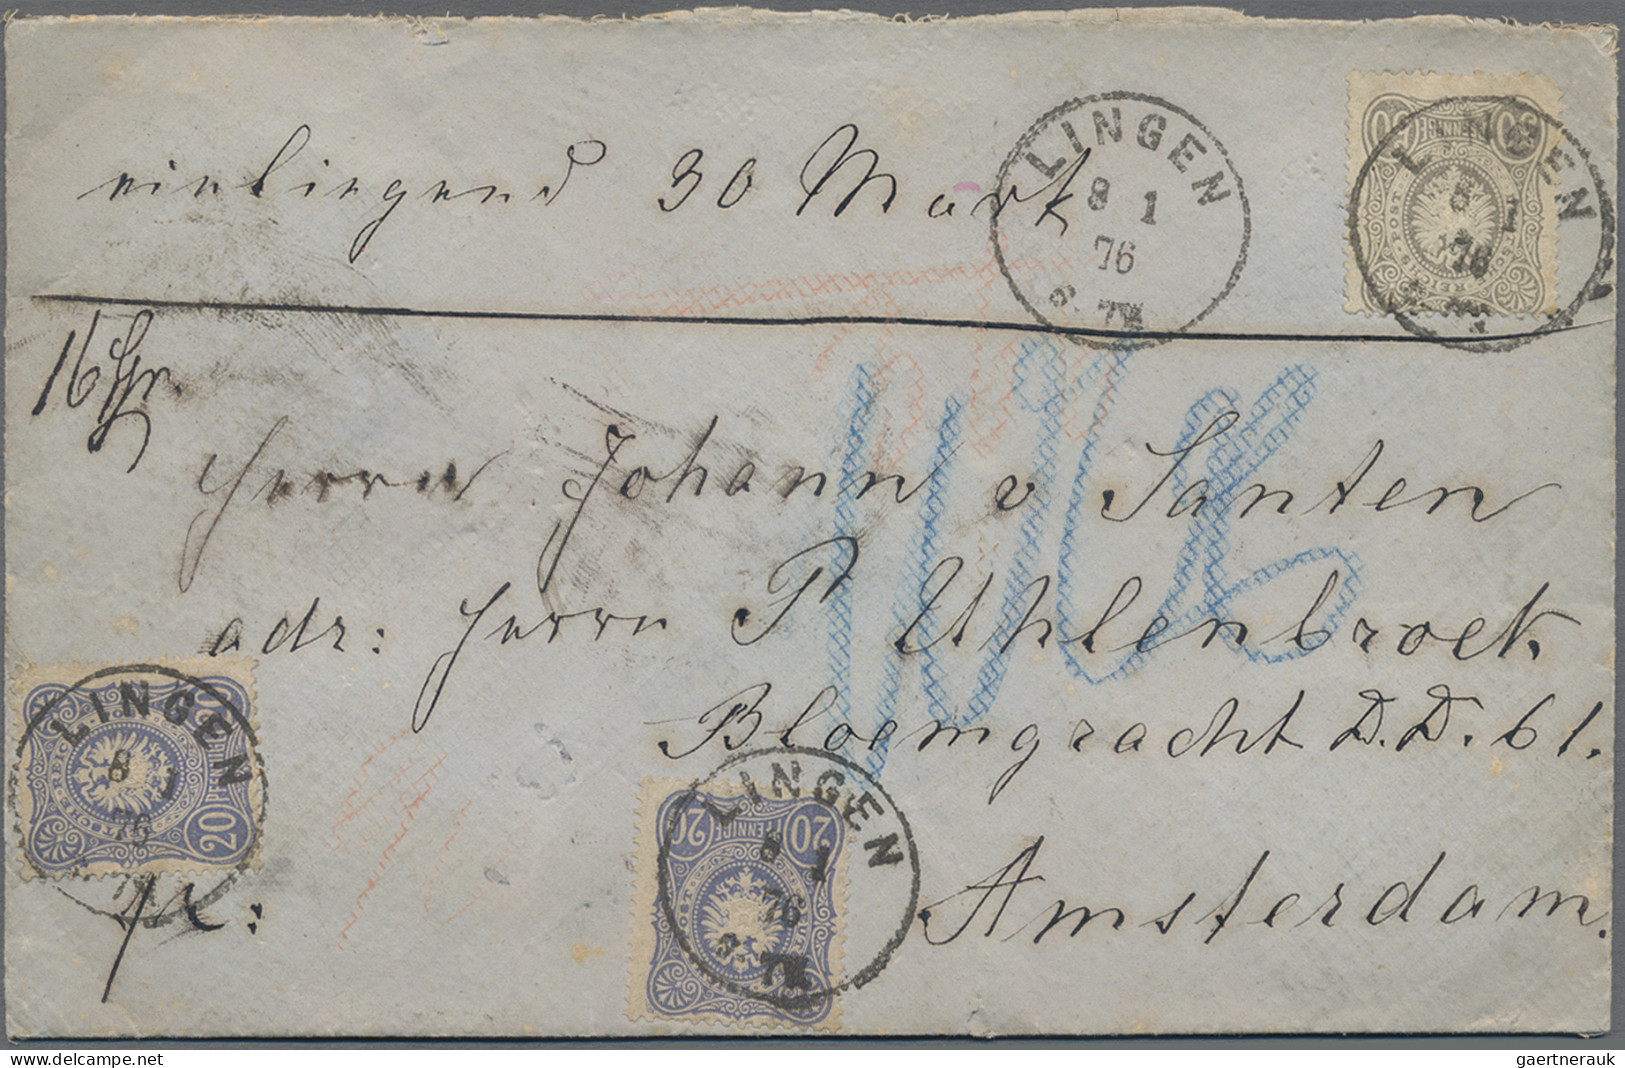 einliegend 30 Mark
LINGEN
8 1
76
LINGEN
8 1
76
50 PFENNIGE 50
REICHS-POST
16 Gr.
Herrn Johann v Santen
adr: Herrn P Uhlenbroek
Bloemgracht D.D. 61.
Amsterdam.
LINGEN
8 1
76
20 PFENNIGE 20
LINGEN
8 1
76
20 PFENNIGE 20
delcampe.net
gaertnerauk